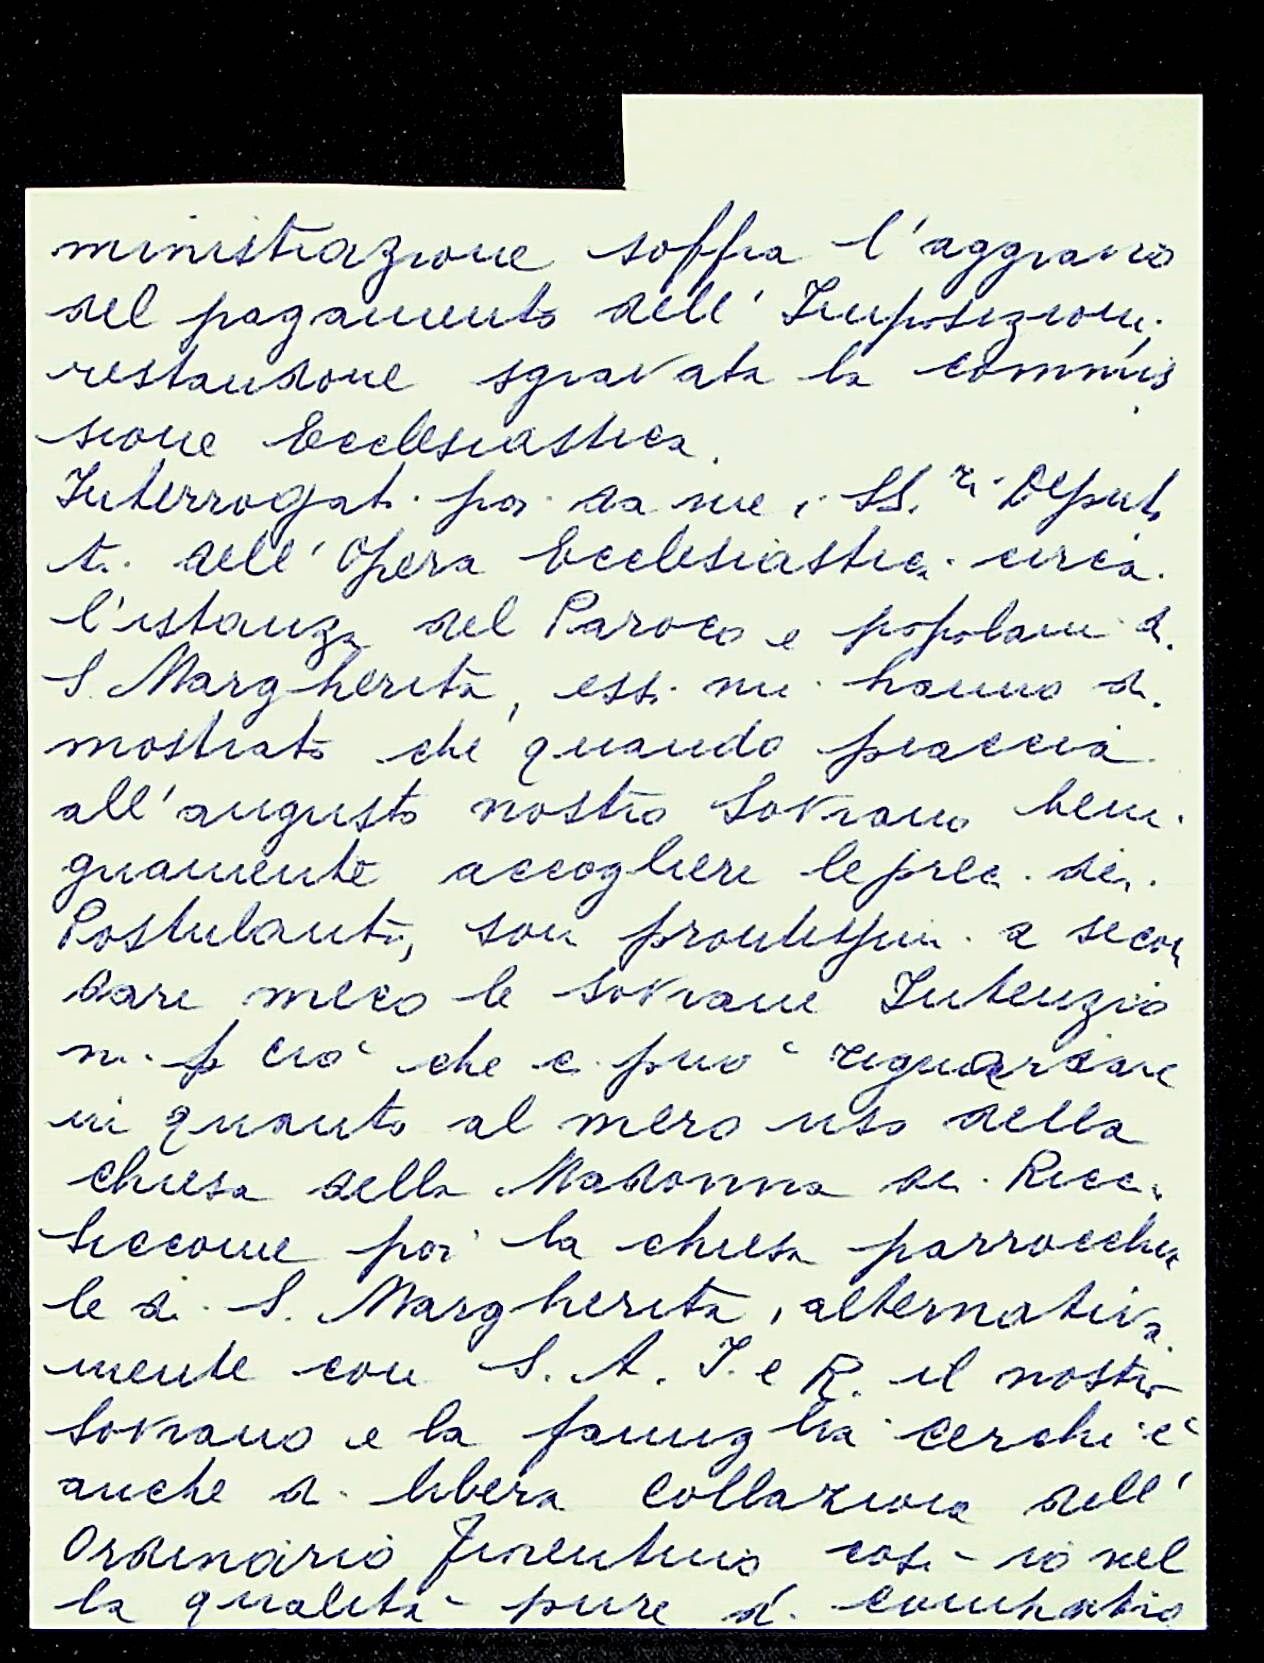 ministrazione soffra l'aggravio
del pagamento dell' Imposizioni,
restandone sgravata la commis
sione Ecclesiastica.
Interrogati poi da me i SS.ri Deput
ti dell' Opera Ecclesiastica circa
l'istanza del Paroco e popolani di
S. Margherita, essi mi hanno di
mostrato che quando piaccia
all'augusto nostro Sovrano beni
gnamente accogliere le preci dei
Postulanti, son prontissimi a secon
dare meco le sovrane Intenzio
ni p ciò che ci può riguardare
in quanto al mero uso della
chiesa della Madonna dei Ricci.
Siccome poi la chiesa parrocchia
le di S. Margherita, alternativa
mente con S. A. I. e R. il nostro
Sovrano e la famiglia Cerchi è
anche di libera collazione dell'
Ordinario Fiorentino così io nel
la qualità pure di